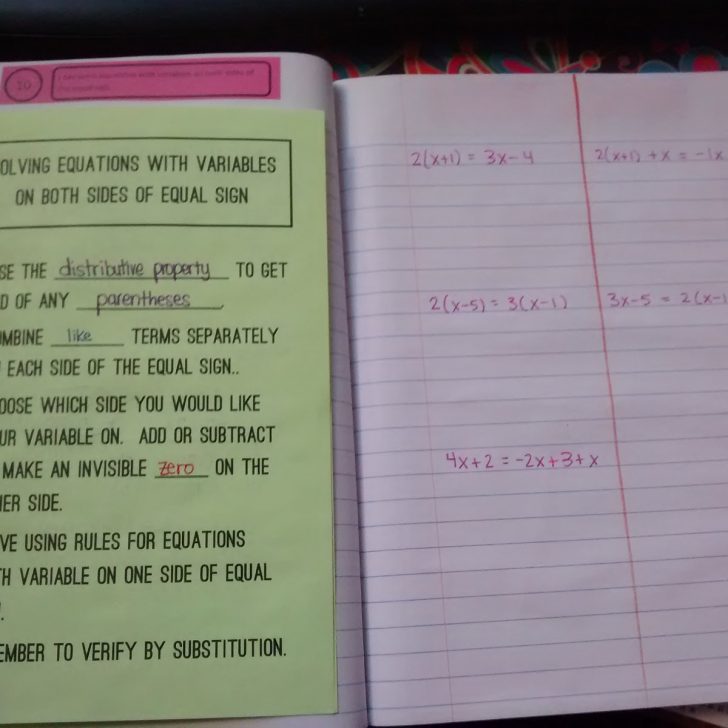 10
OLVING EQUATIONS WITH VARIABLES
ON BOTH SIDES OF EQUAL SIGN
SE THE distributive property TO GET
D OF ANY parentheses.
MBINE like TERMS SEPARATELY
EACH SIDE OF THE EQUAL SIGN..
OOSE WHICH SIDE YOU WOULD LIKE
UR VARIABLE ON. ADD OR SUBTRACT
MAKE AN INVISIBLE zero ON THE
HER SIDE.
VE USING RULES FOR EQUATIONS
TH VARIABLE ON ONE SIDE OF EQUAL
EMBER TO VERIFY BY SUBSTITUTION.
2(x+1) = 3x-4
2(x+1) + x = -1x
2(x-5) = 3(x-1)
3x-5 = 2(x-1
4x+2 = -2x+3+x